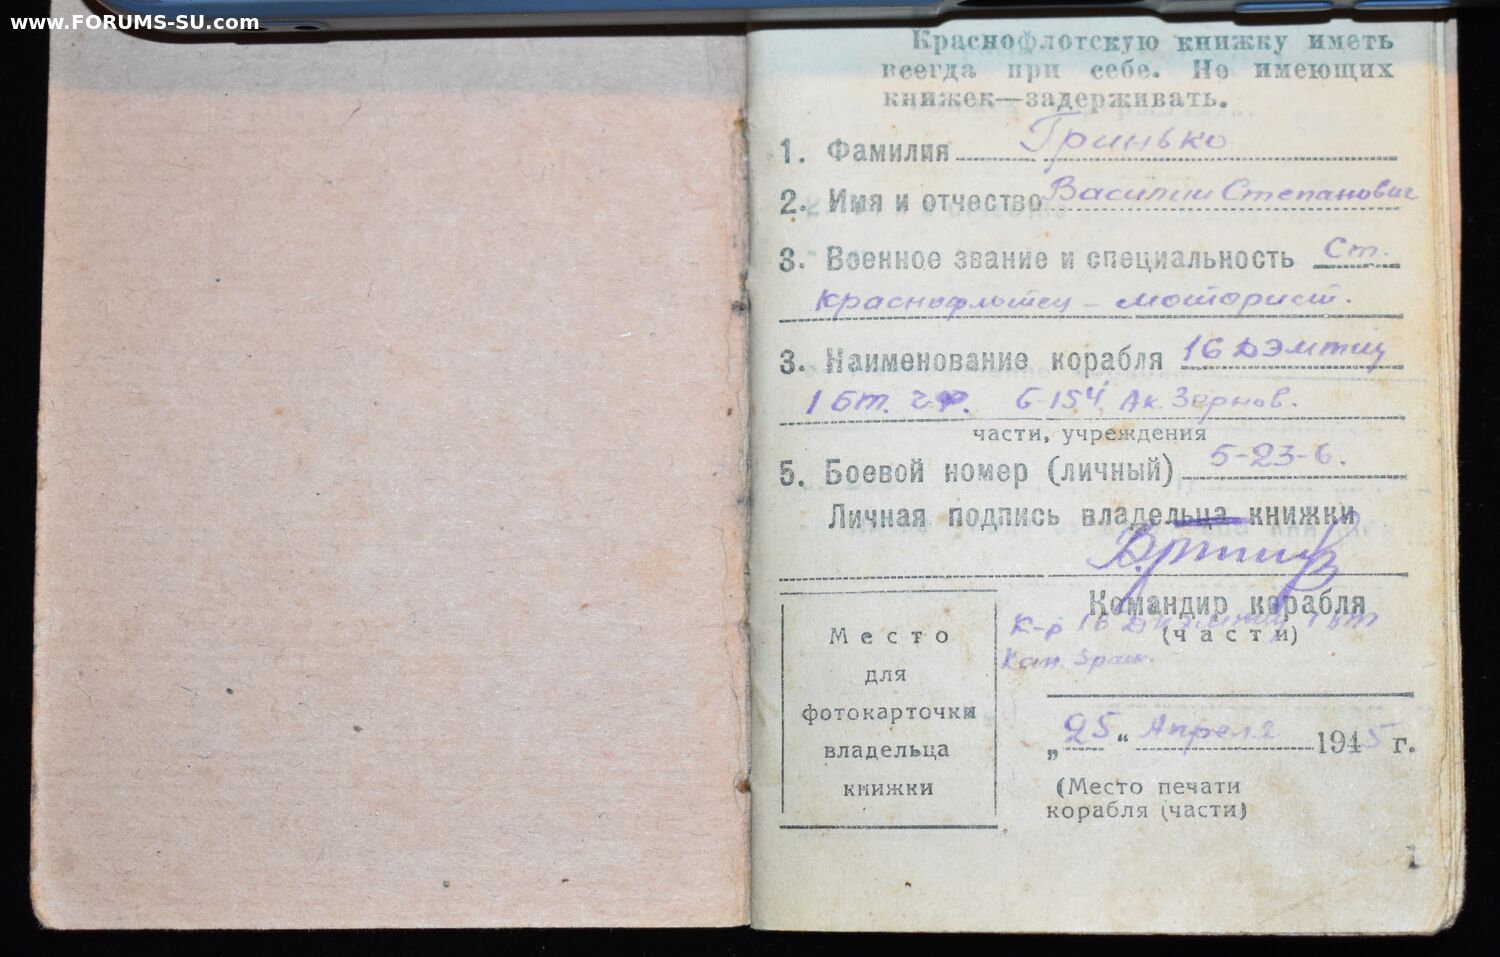 www.FORUMS-SU.com
Краснофлотскую книжку иметь
всегда при себе. Не имеющих
книжек—задерживать.
1. Фамилия Гринько
2. Имя и отчество Василий Степанович
3. Военное звание и специальность Ст.
краснофлотец - моторист.
3. Наименование корабля 16 ДЭМТЩ
1 бт. ч.ф. Б-154. Ак. Зернов.
части, учреждения
5. Боевой номер (личный) 5-23-6.
Личная подпись владельца книжки
Командир корабля
К-р 16
(части)
Кап.
„25“ Апреля 1945 г.
(Место печати
корабля (части)
Место
для
фотокарточки
владельца
книжки
1